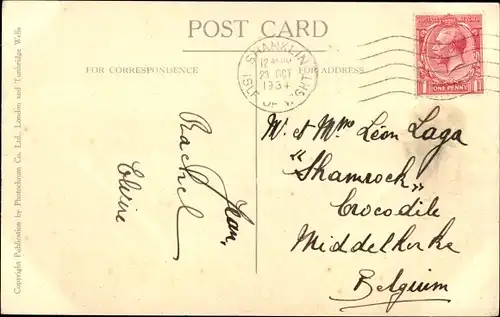 POST CARD
FOR CORRESPONDENCE
FOR ADDRESS
SHANKLIN
21 OCT
1934
ISLE OF WIGHT
ONE PENNY
M. & Mme Léon Laga
"Shamrock"
Crocodile
Middelkerke
Belgium
Jean,
Rachel
Claire
Copyright Publication by Photochrom Co. Ltd., London and Tunbridge Wells